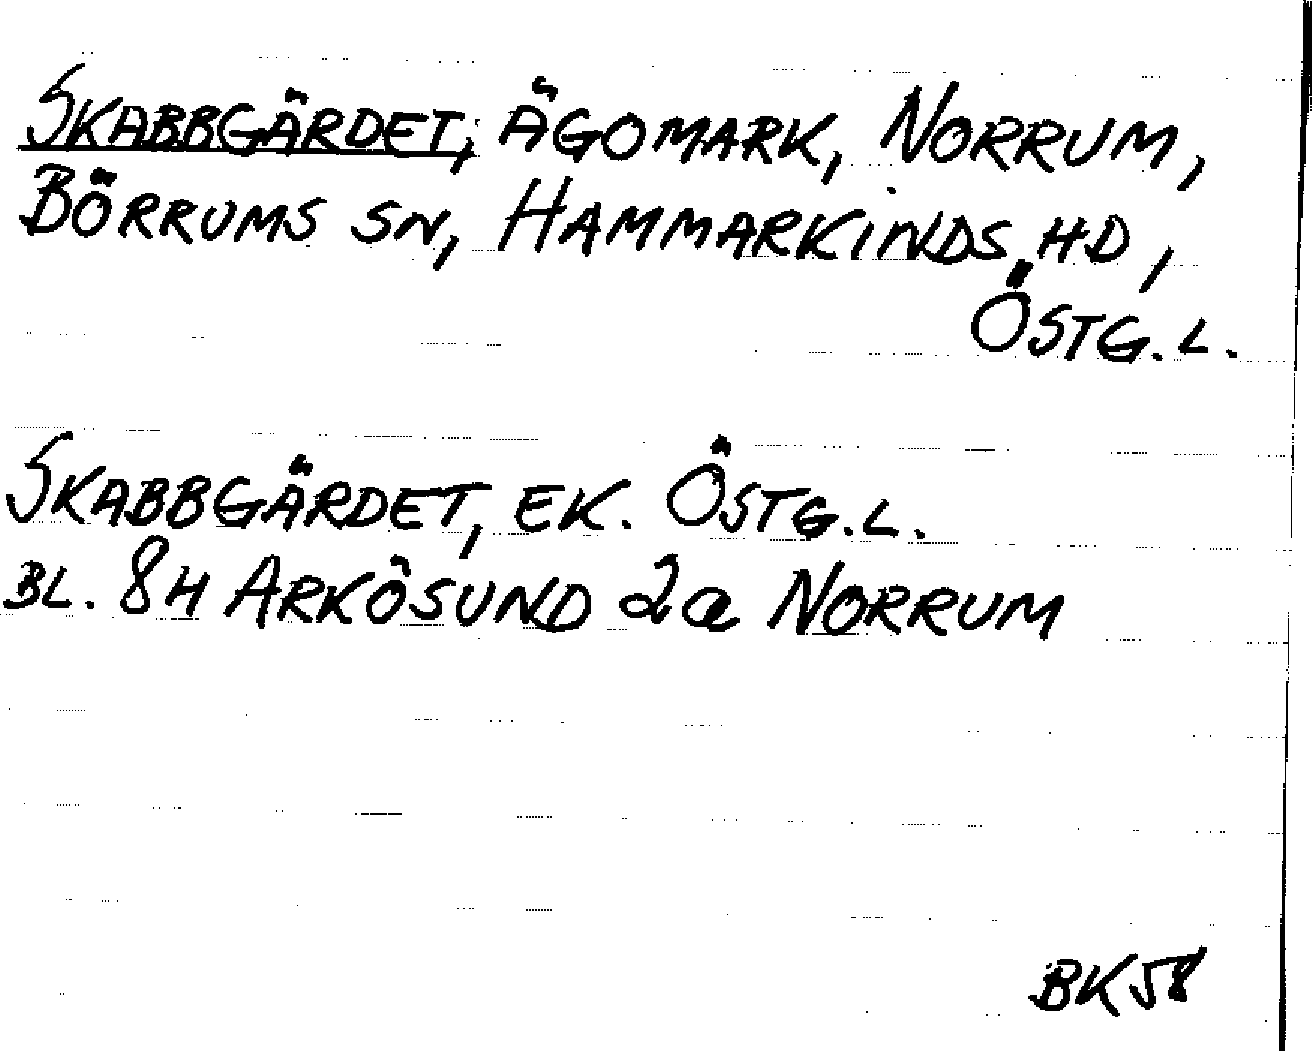 SKABBGÄRDET, ÄGOMARK, NORRUM,
BÖRRUMS SN, HAMMARKINDS HD,
ÖSTG.L.
SKABBGÄRDET, EK. ÖSTG.L.
BL. 8H ARKÖSUND 2a NORRUM
BK58